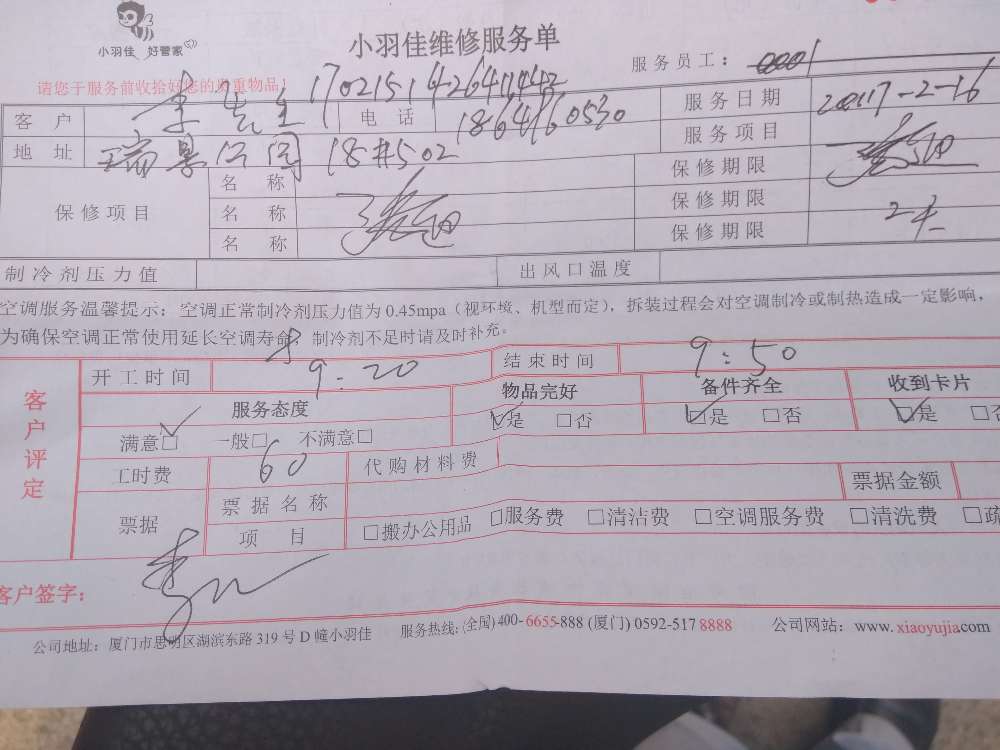 小羽佳 好管家
小羽佳维修服务单
服务员工：0001
请您于服务前收拾好您的贵重物品！
170215142641442
客户 李先生 电话 18649160530 服务日期 2017-2-16
地址 瑞景公园 18#502 服务项目
保修项目 名称 保修期限
名称 保修期限
名称 保修期限
制冷剂压力值 出风口温度
空调服务温馨提示：空调正常制冷剂压力值为0.45mpa（视环境、机型而定），拆装过程会对空调制冷或制热造成一定影响，
为确保空调正常使用延长空调寿命，制冷剂不足时请及时补充。
客户评定
开工时间 9:20 结束时间 9:50
服务态度 物品完好 备件齐全 收到卡片
满意☑ 一般□ 不满意□ ☑是 □否 ☑是 □否 ☑是 □
工时费 60 代购材料费
票据 票据名称 票据金额
项目 □搬办公用品 □服务费 □清洁费 □空调服务费 □清洗费 □疏
客户签字：
公司地址：厦门市思明区湖滨东路319号D幢小羽佳 服务热线：(全国)400-6655-888 (厦门) 0592-517 8888 公司网站：www.xiaoyujia.com